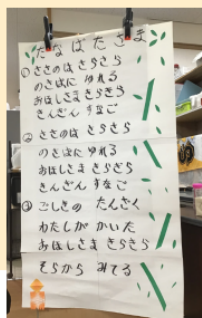 たなばたさま
① ささのは さらさら
のきばに ゆれる
おほしさま きらきら
きんぎん すなご
② ささのは さらさら
のきばに ゆれる
おほしさま きらきら
きんぎん すなご
③ ごしきの たんざく
わたしが かいた
おほしさま きらきら
そらから みてる